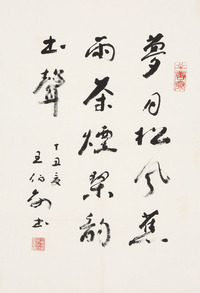 夢月松风蕉
雨茶煙琴韻
书聲
丁丑夏
王伯敏书